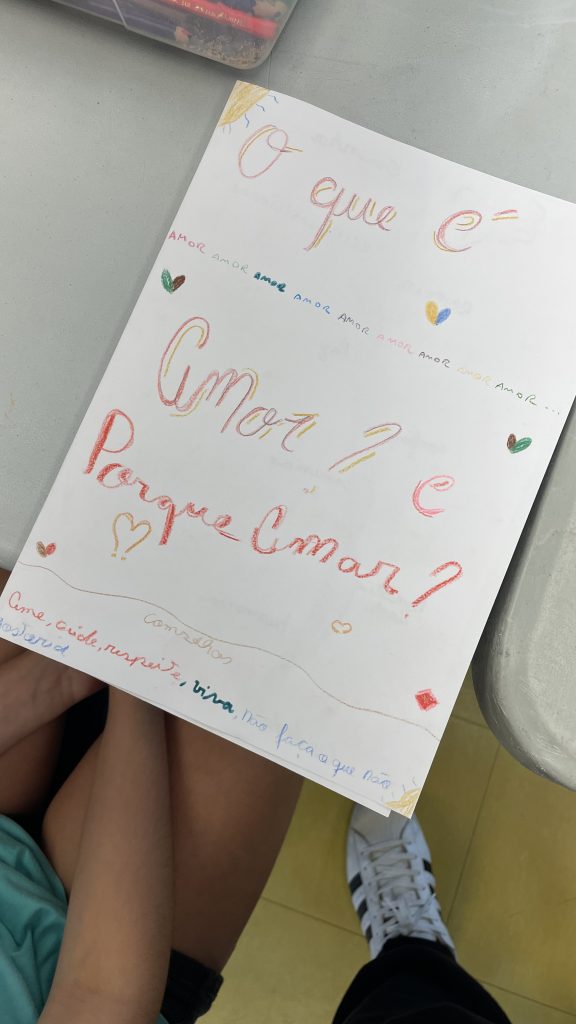 O que é
AMOR AMOR AMOR AMOR AMOR AMOR AMOR AMOR AMOR ...
Amor? e
Porque Amar?
conselhos
Ame, cuide, respeite, viva, não faça o que não
gostaria